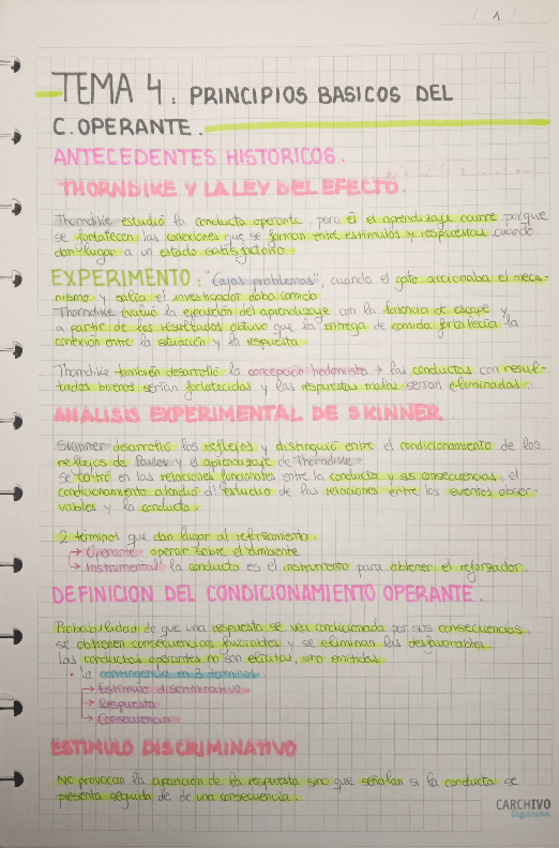 1
TEMA 4: PRINCIPIOS BASICOS DEL
C. OPERANTE.
ANTECEDENTES HISTORICOS.
THORNDIKE Y LA LEY DEL EFECTO.
Thorndike estudió la conducta operante, para él el aprendizaje ocurre porque
se fortalecen las conexiones que se forman entre estímulos y respuestas cuando
dan lugar a un estado satisfactorio.
EXPERIMENTO: "Cajas problemas", cuando el gato accionaba el meca-
nismo y salía el investigador daba comida.
Thorndike evaluó la ejecución del aprendizaje con la latencia de escape y
a partir de los resultados obtuvo que la entrega de comida fortalecía la
conexión entre la situación y la respuesta.
Thorndike también desarrolló la concepción hedonista → las conductas con resul-
tados buenos serían fortalecidas y las respuestas malas serían eliminadas.
ANALISIS EXPERIMENTAL DE SKINNER.
Skinner desarrolló los reflejos y distinguió entre el condicionamiento de los
reflejos de Pavlov y el aprendizaje de Thorndike.
se centró en las relaciones funcionales entre la conducta y sus consecuencias, el
condicionamiento atendió al estudio de las relaciones entre los eventos obser-
vables y la conducta.
2 términos que dan lugar al reforzamiento:
→ Operante: operar sobre el ambiente
→ Instrumental: la conducta es el instrumento para obtener el reforzador.
DEFINICION DEL CONDICIONAMIENTO OPERANTE.
Probabilidad de que una respuesta se vea condicionada por sus consecuencias,
se obtienen consecuencias favorables y se eliminan las desfavorables.
Las conductas operantes no son emitidas.
• La contingencia en 3 términos
→ Estímulo discriminativo
→ Respuesta
→ Consecuencia
ESTIMULO DISCRIMINATIVO
No provocan la aparición de la respuesta sino que señalan si la conducta se
presenta seguida de de una consecuencia.
CARCHIVO